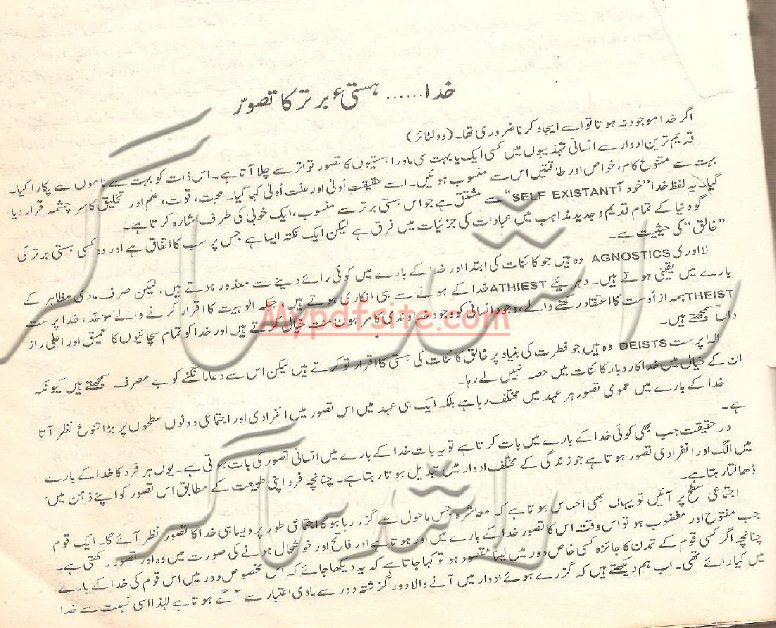 خدا...... ہستیء برتر کا تصور
اگر خدا موجود نہ ہوتا تو اسے ایجاد کرنا ضروری تھا۔ (وولٹائر)
قدیم ترین ادوار سے انسانی تہذیبوں میں کسی ایک یا بہت سی ماورا ہستیوں کا تصور تواتر سے چلا آتا ہے۔ اس ذات کو بہت سے ناموں سے پکارا گیا۔
بہت سے متنوع کام، خواص اور طاقتیں اس سے منسوب ہوئیں۔ اسے حقیقت اُولیٰ اور علت اُولیٰ کہا گیا۔ محبت، قوت، علم اور تخلیق کا سرچشمہ قرار دیا
گیا۔ یہ لفظ خدا "خود آ SELF EXISTANT" سے مشتق ہے جو اس ہستی برتر سے منسوب، ایک خوبی کی طرف اشارہ کرتا ہے۔
گو دنیا کے تمام قدیم و جدید مذاہب میں عبادات کی جزئیات میں فرق ہے لیکن ایک نکتہ ایسا ہے جس پر سب کا اتفاق ہے اور وہ کسی ہستی برتر کی
"خالق" کی حیثیت ہے۔
لا ادری AGNOSTICS وہ ہیں جو کائنات کی ابتدا اور خدا کے بارے میں کوئی رائے دینے سے معذور ہوتے ہیں، لیکن صرف مادی مظاہر کے
بارے میں یقینی ہوتے ہیں۔ دہریئے ATHIEST خدا کے ہونے سے ہی انکاری ہوتے ہیں۔ جبکہ الوہیت کا اقرار کرنے والے موحد، خدا پرست
THEIST ہمہ از اوست کا اعتقاد رکھنے والے، وجود انسانی کو وجود خداوندی کا مرہون منت خیال کرتے ہیں اور خدا کو تمام سچائیوں کا عمیق اور اعلیٰ راز
داں سمجھتے ہیں۔
الٰہ پرست DEISTS وہ ہیں جو فطرت کی بنیاد پر خالق کائنات کی ہستی کا اقرار تو کرتے ہیں لیکن اس سے دعا مانگنے کو بے مصرف سمجھتے ہیں کیونکہ
ان کے خیال میں خدا کاروبار کائنات میں حصہ نہیں لے رہا۔
خدا کے بارے میں عمومی تصور ہر عہد میں مختلف رہا ہے بلکہ ایک ہی عہد میں اس تصور میں انفرادی اور اجتماعی دونوں سطحوں پر بڑا تنوع نظر آتا
ہے۔
درحقیقت جب بھی کوئی خدا کے بارے میں بات کرتا ہے تو یہ بات خدا کے بارے میں انسانی تصور کی بات ہوتی ہے۔ یوں ہر فرد کا خدا کے بارے
میں الگ اور انفرادی تصور ہوتا ہے جو زندگی کے مختلف ادوار میں تبدیل ہوتا رہتا ہے۔ چنانچہ فرد اپنی طبیعت کے مطابق اس تصور کو اپنے ذہن میں
ڈھالتا رہتا ہے۔
اجتماعی سطح پر آئیں تو یہاں بھی احساس ہوتا ہے کہ معاشرہ جس ماحول سے گزر رہا ہو گا اجتماعی طور پر ویسا ہی خدا کا تصور نظر آئے گا۔ ایک قوم
جب مفتوح اور مغضوب ہو تو اس وقت اس کا تصور خدا کے بارے میں اور ہوتا ہے اور فاتح اور خوشحال ہونے کی صورت میں وہ اور تصور رکھتی ہے۔
چنانچہ اگر کسی قوم کے تمدن کا جائزہ کسی خاص دور میں لینا مقصود ہو تو کہا جاتا ہے کہ یہ دیکھا جائے کہ اس مخصوص دور میں اس قوم کی خدا کے بارے
میں کیا رائے تھی۔ اب ہم دیکھتے ہیں کہ گزرے ہوئے ادوار میں آنے والا دور گزشتہ دور سے مادی اعتبار سے آگے ہوتا ہے لہٰذا اسی نسبت سے خدا
Mypdfsite.com
راشد ساگر
راشد ساگر